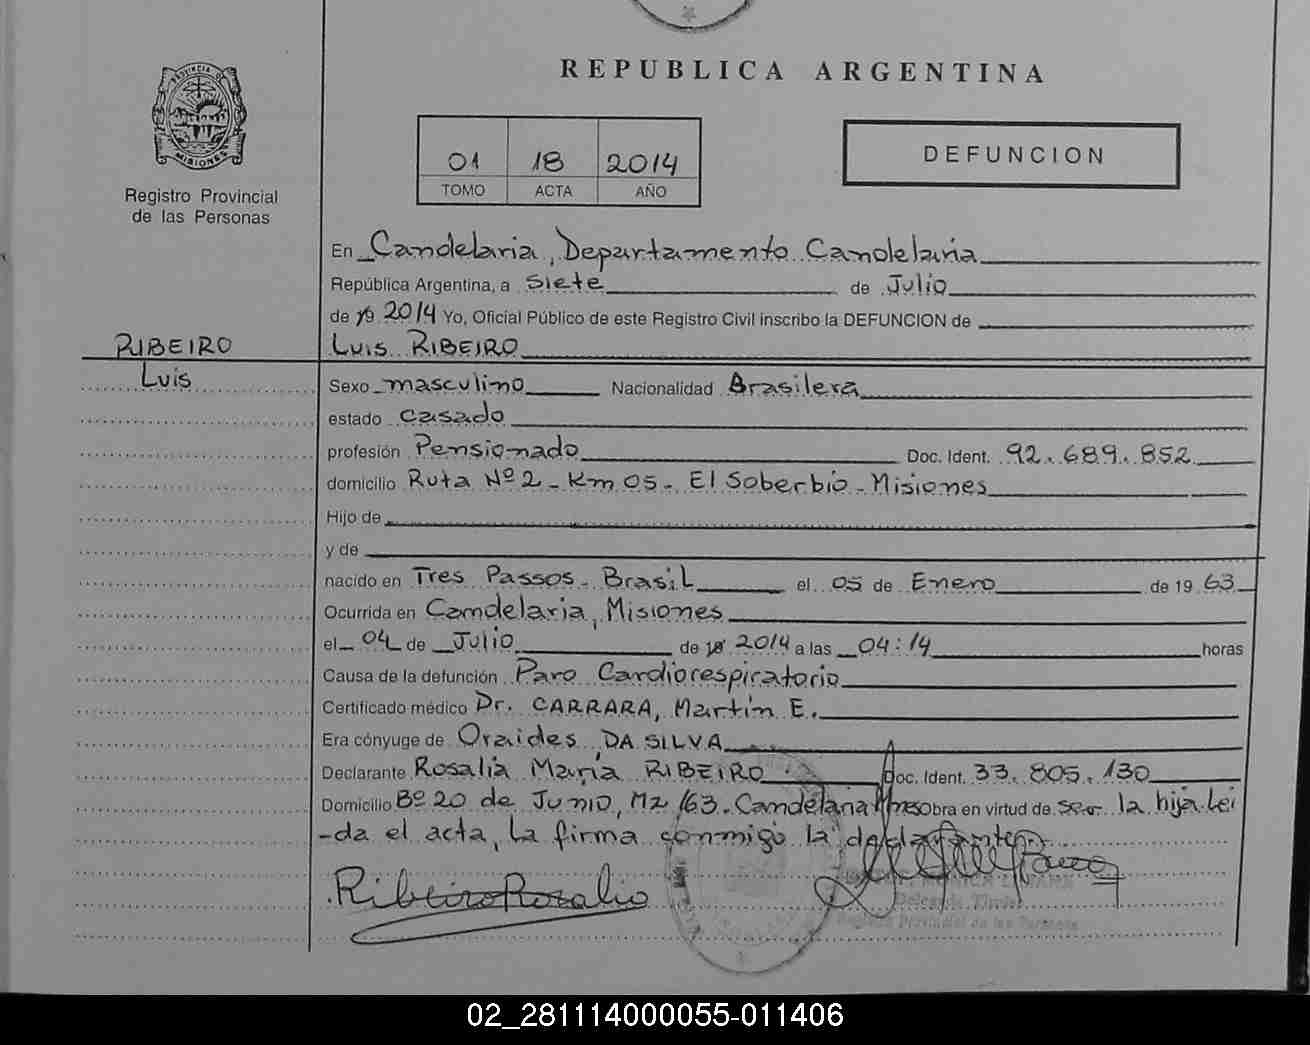 REPUBLICA ARGENTINA
PROVINCIA DE
MISIONES
Registro Provincial
de las Personas
01 18 2014
TOMO ACTA AÑO
DEFUNCION
En Candelaria, Departamento Candelaria
República Argentina, a siete de Julio
de 19 2014 Yo, Oficial Público de este Registro Civil inscribo la DEFUNCION de
RIBEIRO
Luis RIBEIRO
Luis
Sexo masculino Nacionalidad Brasilera
estado casado
profesión Pensionado Doc. Ident. 92.689.852
domicilio Ruta Nº2 - Km 05 - El Soberbio - Misiones
Hijo de
y de
nacido en Tres Passos - Brasil el 05 de Enero de 1963
Ocurrida en Candelaria, Misiones
el 04 de Julio de 19 2014 a las 04:14 horas
Causa de la defunción Paro Cardiorespiratorio
Certificado médico Dr. CARRARA, Martín E.
Era cónyuge de Oraides DA SILVA
Declarante Rosalia María RIBEIRO Doc. Ident. 33.805.130
Domicilio Bº 20 de Junio, Mz 163 - Candelaria Mnes Obra en virtud de ser la hija. Lei
-da el acta, la firma conmigo la declarante
Ribeiro Rosalia
Registro Provincial de las Personas
02_281114000055-011406